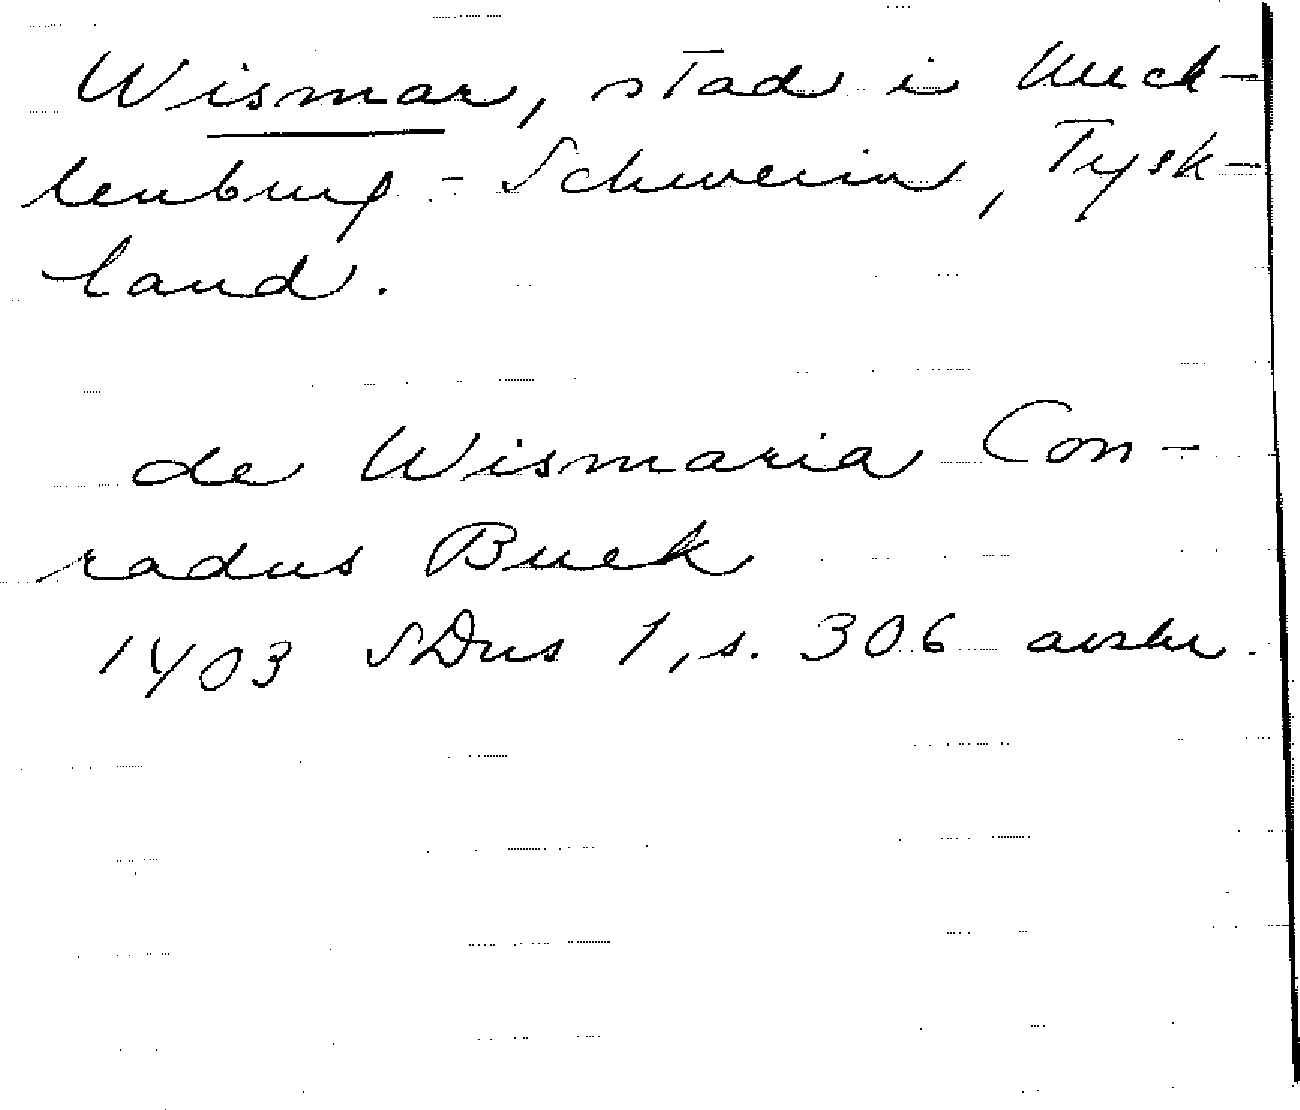 Wismar, stad i Meck-
lenburg - Schwerin, Tysk-
land.
de Wismaria Con-
radus Buek
1403 SDns 1, s. 306 avskr.